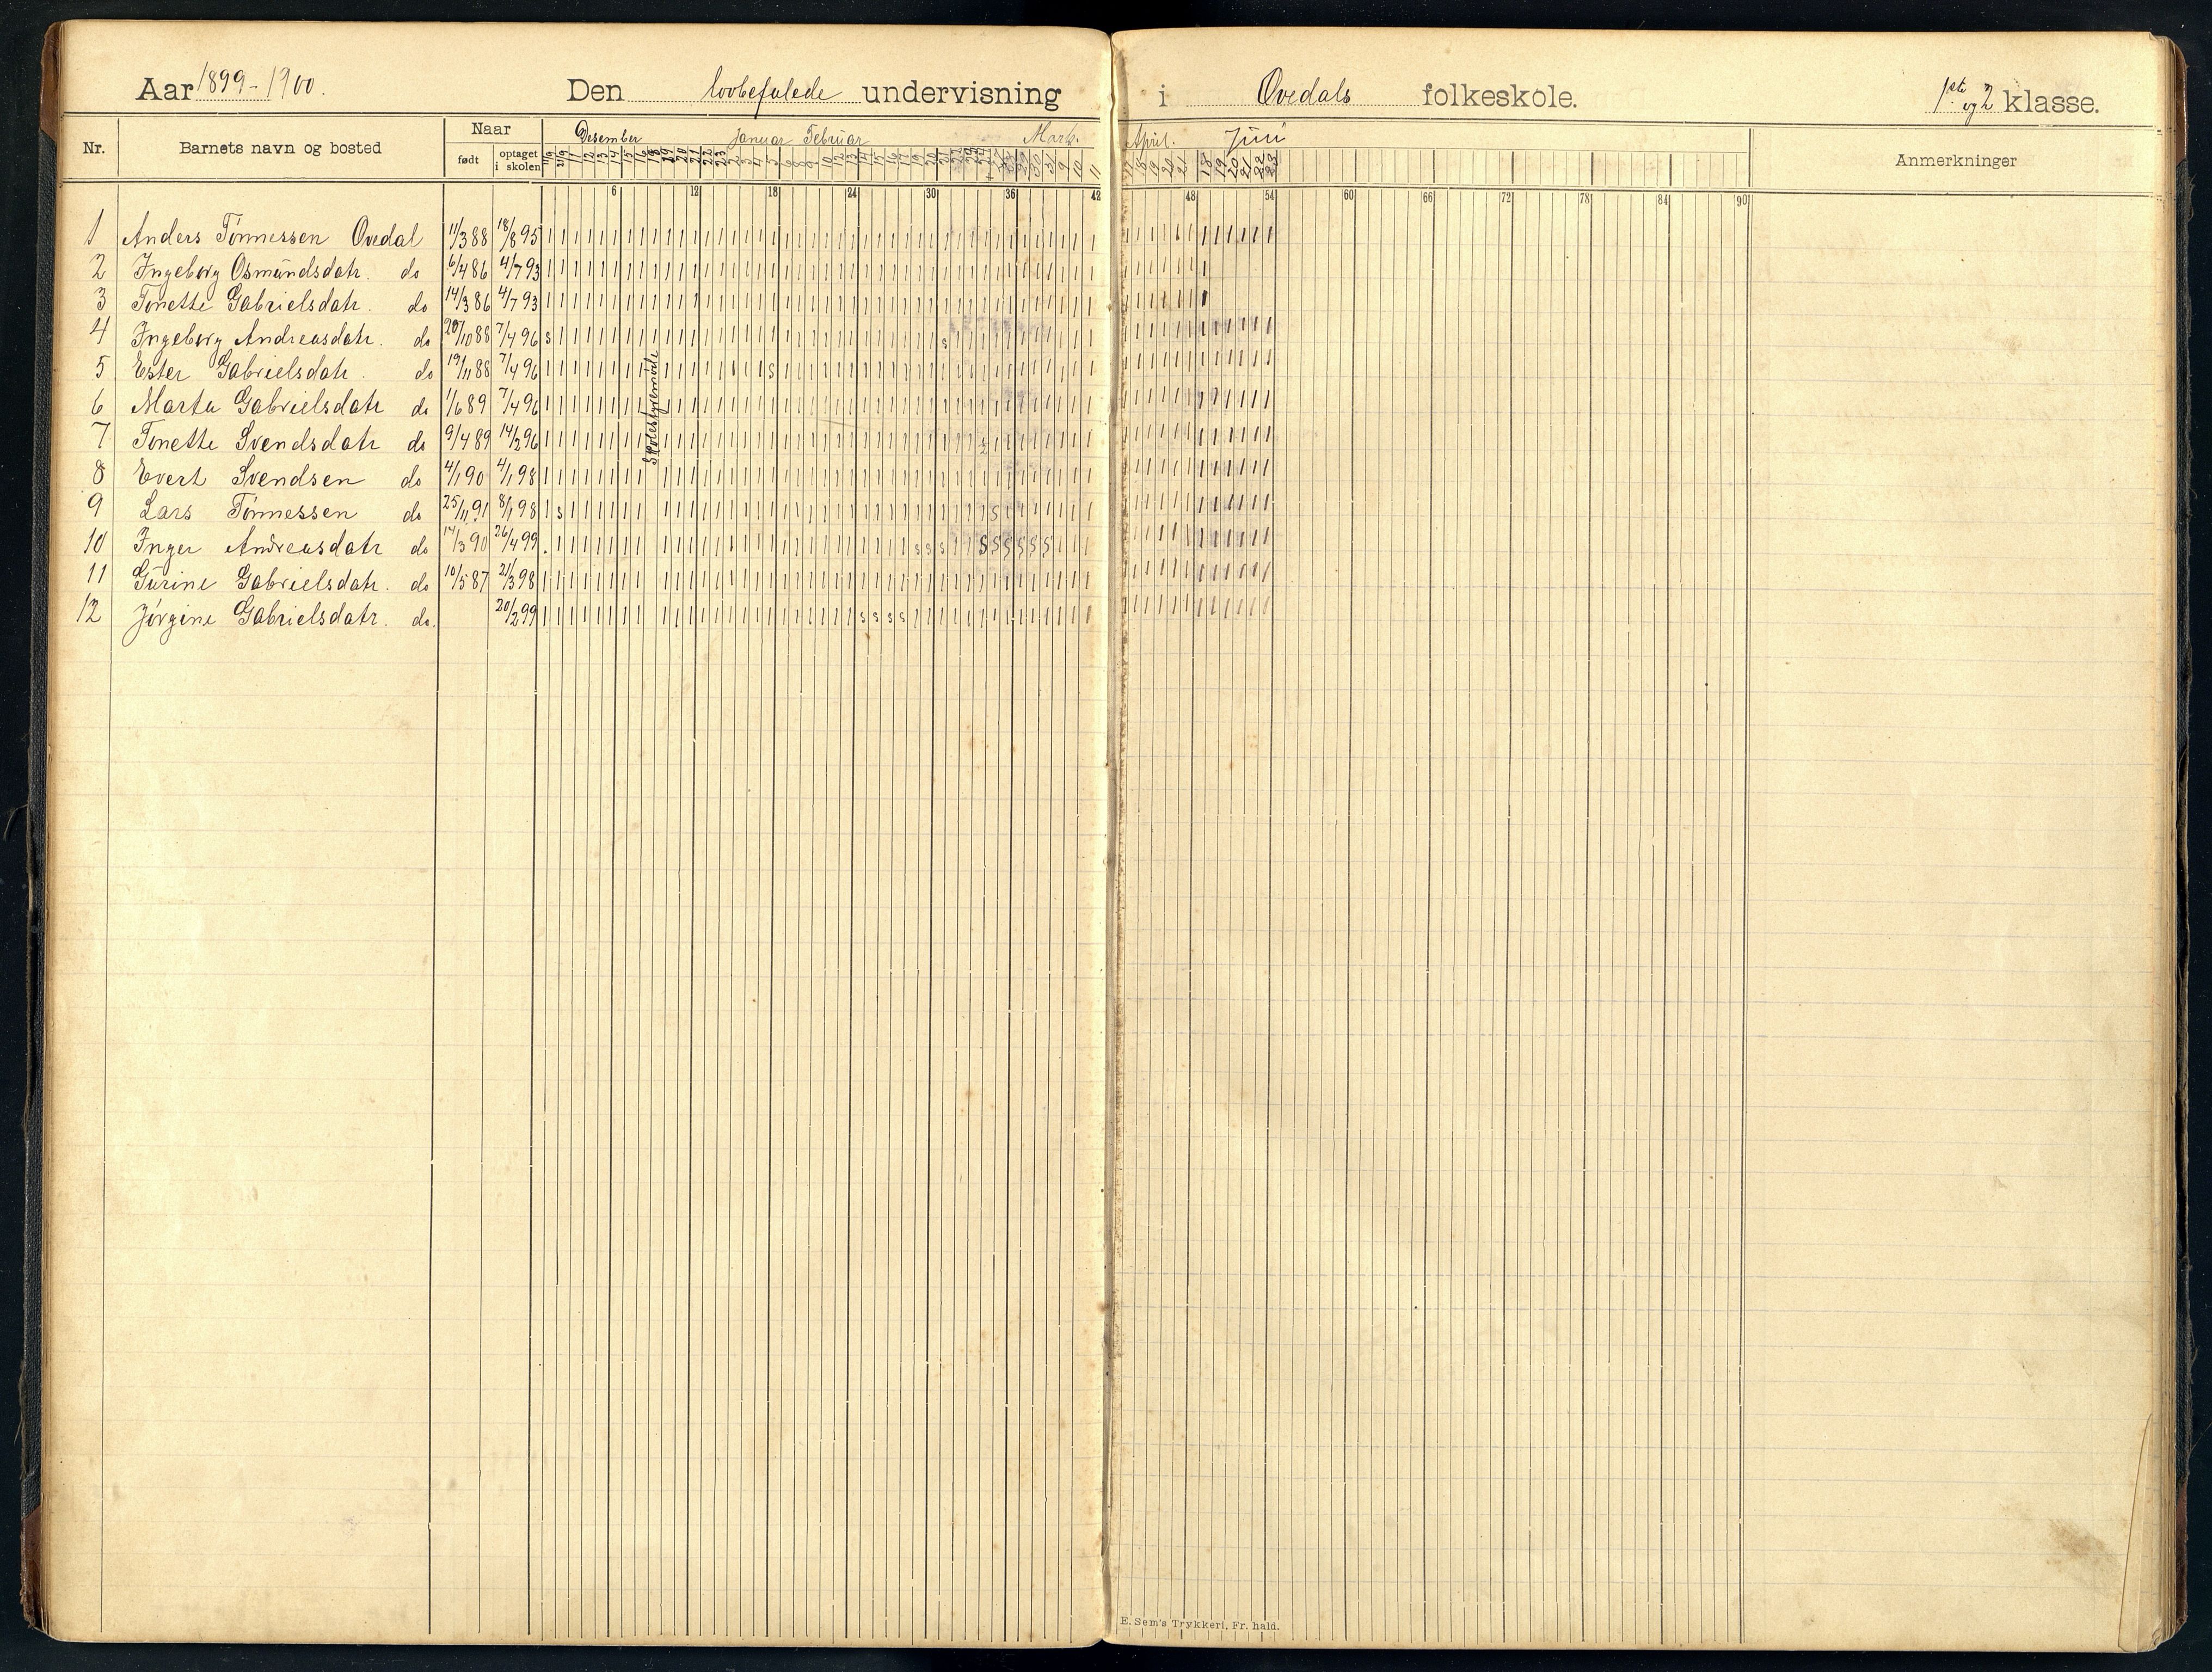 Aar 1899-1900. Den lovbefalede undervisning i Ovedals folkeskole. 1ste og 2 klasse.
Nr. Barnets navn og bosted Naar født optaget i skolen Desember Januar Februar Marts. April. Juni Anmerkninger
6 12 18 24 30 36 42 48 54 60 66 72 78 84 90
1 Anders Tønnessen Ovedal 11/3 88 18/8 95
2 Ingeborg Osmundsdatr. do 6/4 86 4/7 93
3 Tonette Gabrielsdatr. do 14/3 86 4/7 93
4 Ingeborg Andreasdatr. do 20/10 88 7/4 96
5 Ester Gabrielsdatr. do 19/11 88 7/4 96
6 Marta Gabrielsdatr do 1/6 89 7/4 96
7 Tonette Svendsdatr do 9/4 89 14/2 96
8 Evert Svendsen do 4/1 90 4/1 98
9 Lars Tønnessen do 25/11 91 8/1 98
10 Inger Andreasdatr do 14/3 90 26/4 99
11 Gurine Gabrielsdatr. do 10/5 87 21/3 98
12 Jørgine Gabrielsdatr. do. 20/2 99
Skolestyremøde
E. Sem's Trykkeri, Fr. hald.